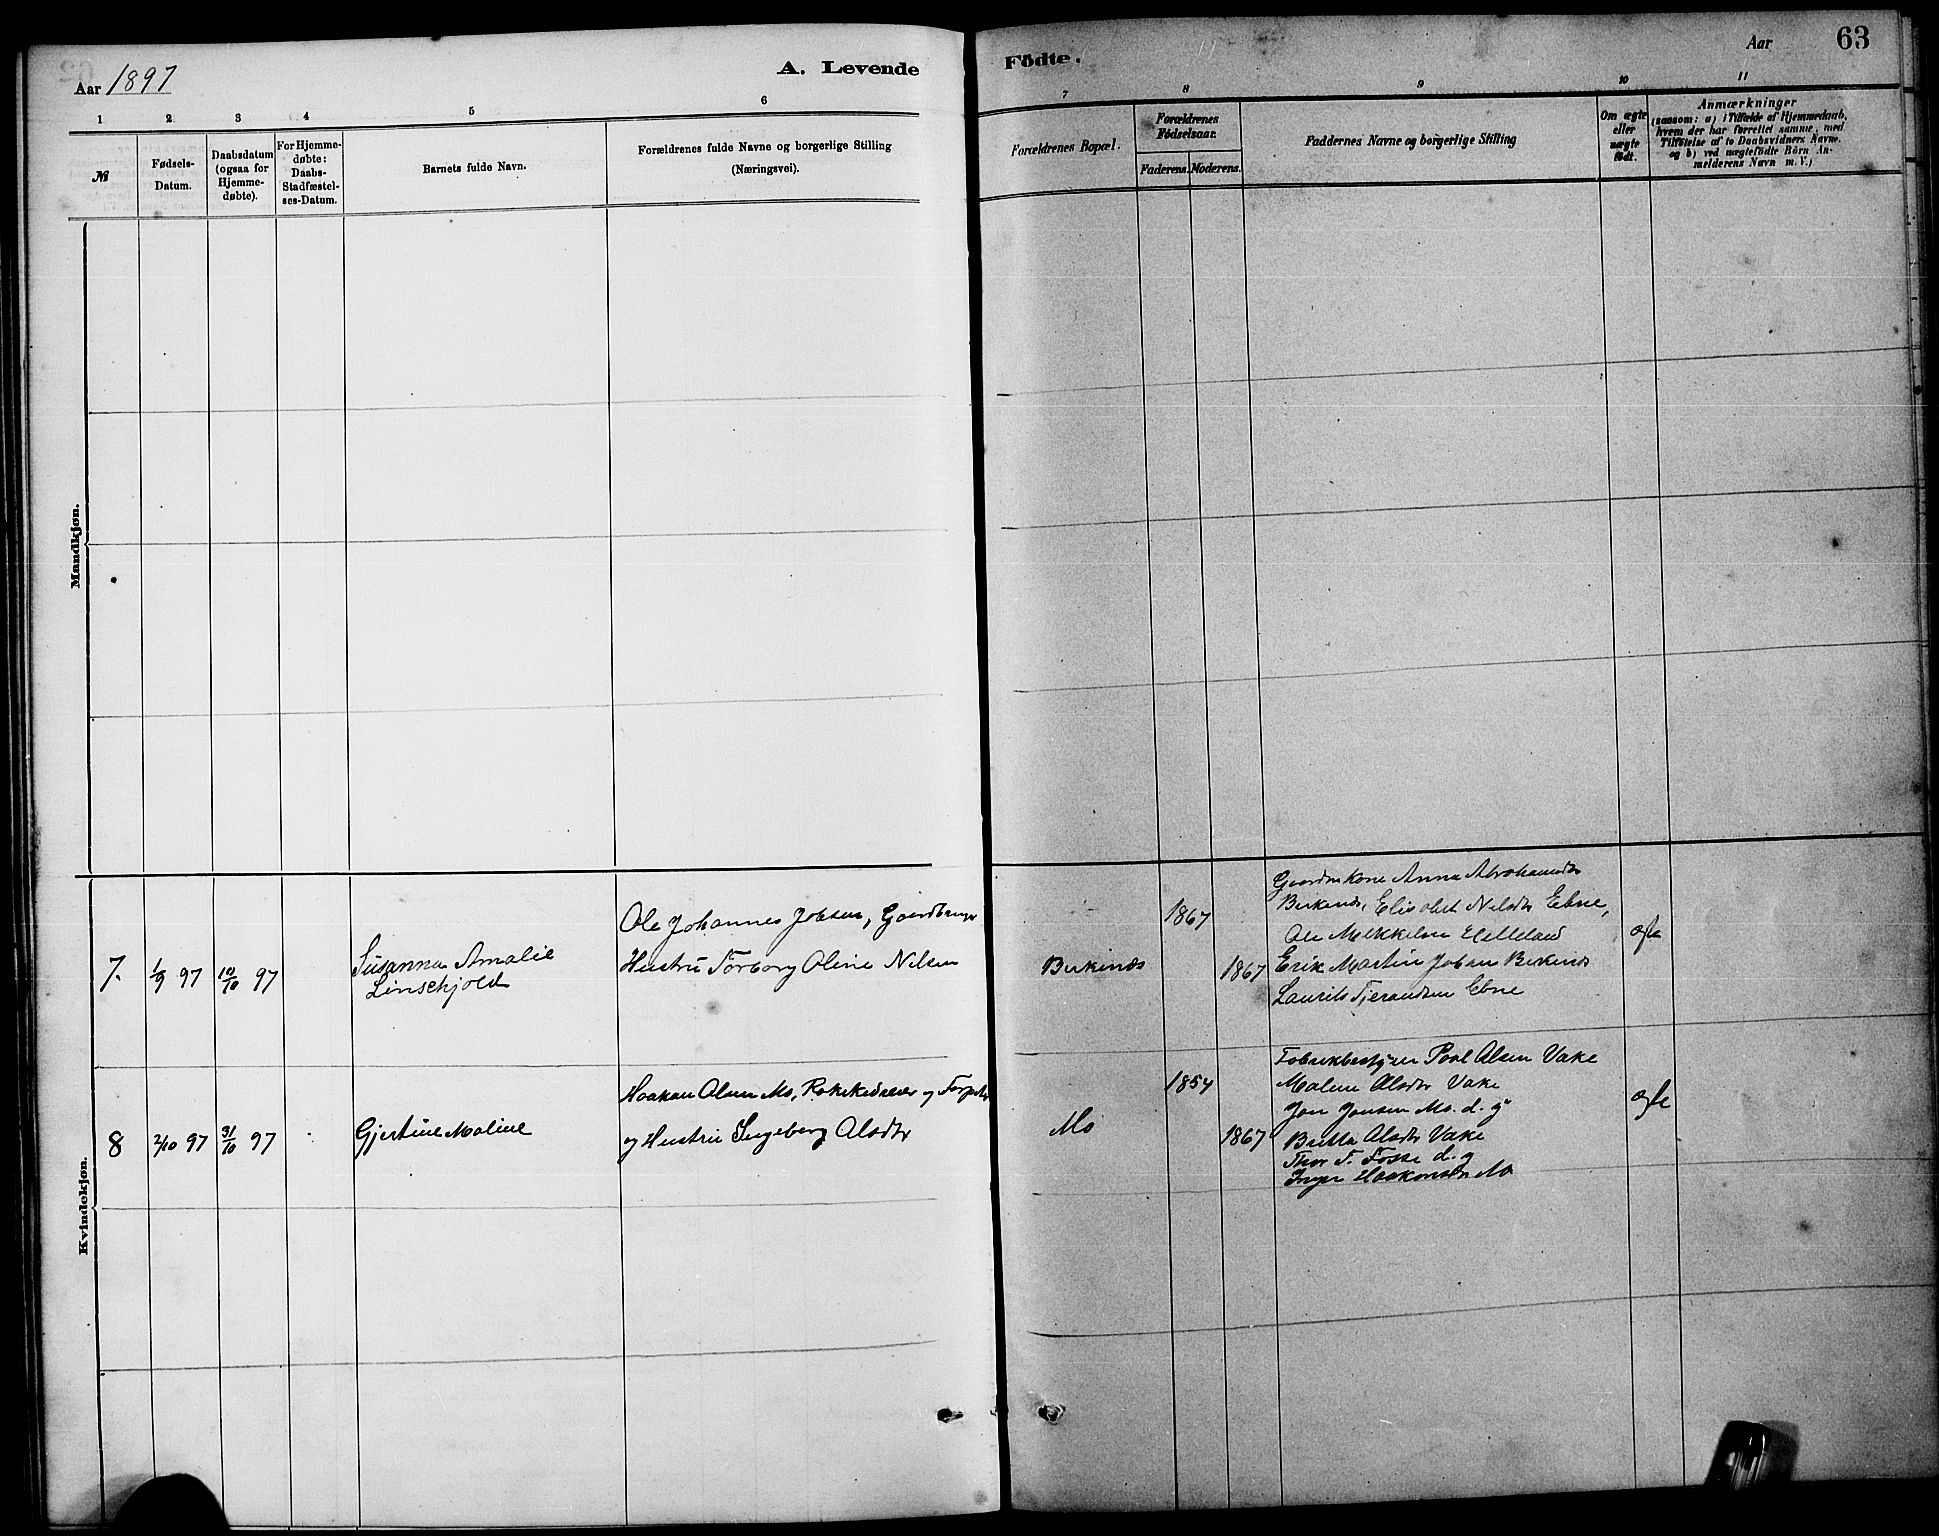 Aar 1897
A. Levende
Fødte.
Aar
63
1 2 3 4 5 6 7 8 9 10 11
№
Fødsels-
Datum.
Daabsdatum
(ogsaa for
Hjemme-
døbte).
For Hjemme-
døbte:
Daabs-
Stadfæstel-
ses-Datum.
Barnets fulde Navn.
Forældrenes fulde Navne og borgerlige Stilling
(Næringsvei).
Forældrenes Bopæl.
Forældrenes
Fødselsaar.
Faderens. Moderens.
Faddernes Navne og borgerlige Stilling
Om ægte
eller
uægte
født.
Anmærkninger
(saasom: a) i Tilfælde af Hjemmedaab,
hvem der har forrettet samme, med
Tilføielse af to Daabsvidners Navne.
og b) ved uægtefødte Börn An-
melderens Navn m. V.)
Mandkjøn.
Kvindekjøn.
7.
1/9 97
10/10 97
Susanna Amalie
Linschjold
Ole Johannes Jobsen, Gaardbruger
Hustru Torborg Oline Nilsen
Birkenæs
1867
1867
Gaardm Kone Anna Abrahamsdtr
Birkenæs, Elisabet Nilsdtr Ebne,
Ole Mekkelsen Helleland
Erik Martin Jobsen Birkenæs
Laurits Tjerandsen Ebne
ægte
8
2/10 97
31/10 97
Gjertine Maline
Haakon Olsen Mo, og
og Hustru Ingeborg Olsdtr
Mo
1854
1867
Fabrikbestyrer Poul Olsen Vake
Malene Olsdtr Vake
Jon Jonsen Mo. d. g
Britta Olsdtr Vake
Thor T. Fosse d. g
Inger Haakonsdtr Mo
ægte